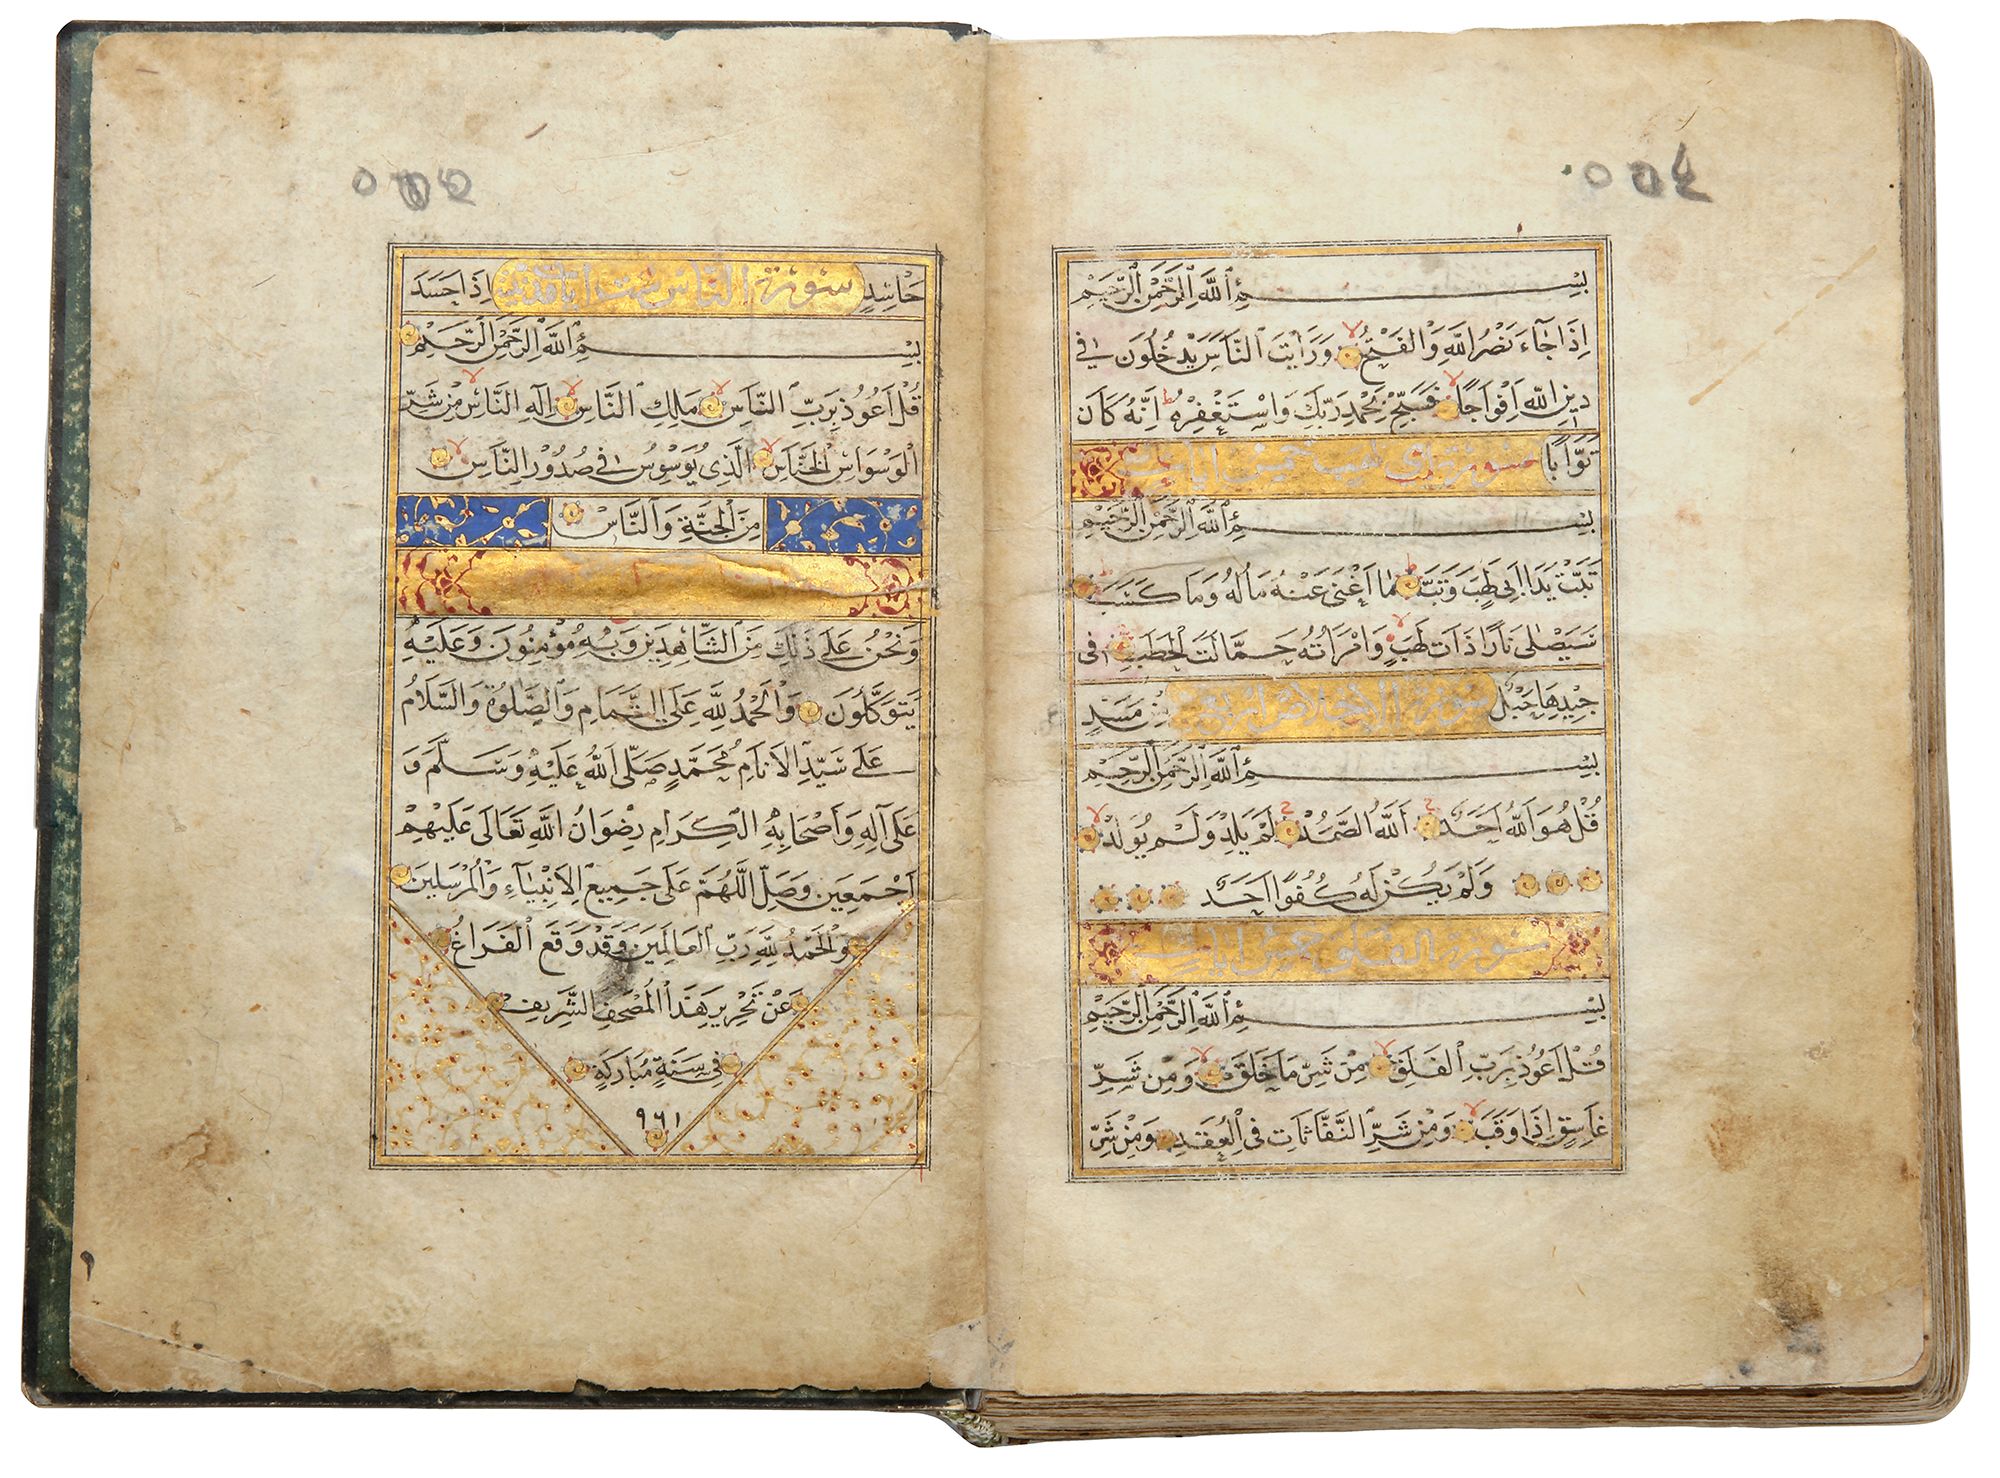 بِسْمِ ٱللَّهِ ٱلرَّحْمَٰنِ ٱلرَّحِيمِ
اِذَا جَآءَ نَصْرُ اللَّهِ وَالْفَتْحُ وَرَاَيْتَ النَّاسَ يَدْخُلُونَ فِى
دِينِ اللَّهِ اَفْوَاجًا فَسَبِّحْ بِحَمْدِ رَبِّكَ وَاسْتَغْفِرْهُ اِنَّهُ كَانَ
تَوَّابًا سورة لهب خمس ايات
بِسْمِ ٱللَّهِ ٱلرَّحْمَٰنِ ٱلرَّحِيمِ
تَبَّتْ يَدَا اَبِى لَهَبٍ وَتَبَّ مَا اَغْنَى عَنْهُ مَالُهُ وَمَا كَسَبَ
سَيَصْلَى نَارًا ذَاتَ لَهَبٍ وَامْرَاَتُهُ حَمَّالَتَ الْحَطَبِ فِى
جِيدِهَا حَبْلٌ سورة الاخلاص اربع مِنْ مَسَدٍ
بِسْمِ ٱللَّهِ ٱلرَّحْمَٰنِ ٱلرَّحِيمِ
قُلْ هُوَ اللَّهُ اَحَدٌ اَللَّهُ الصَّمَدُ لَمْ يَلِدْ وَلَمْ يُولَدْ
وَلَمْ يَكُنْ لَهُ كُفُوًا اَحَدٌ
سورة الفلق خمس ايات
بِسْمِ ٱللَّهِ ٱلرَّحْمَٰنِ ٱلرَّحِيمِ
قُلْ اَعُوذُ بِرَبِّ الْفَلَقِ مِنْ شَرِّ مَا خَلَقَ وَمِنْ شَرِّ
غَاسِقٍ اِذَا وَقَبَ وَمِنْ شَرِّ النَّفَّاثَاتِ فِى الْعُقَدِ وَمِنْ شَرِّ
حَاسِدٍ سورة الناس ست ايات اِذَا حَسَدَ
بِسْمِ ٱللَّهِ ٱلرَّحْمَٰنِ ٱلرَّحِيمِ
قُلْ اَعُوذُ بِرَبِّ النَّاسِ مَلِكِ النَّاسِ اِلَهِ النَّاسِ مِنْ شَرِّ
الْوَسْوَاسِ الْخَنَّاسِ الَّذِى يُوَسْوِسُ فِى صُدُورِ النَّاسِ
مِنَ الْجِنَّةِ وَالنَّاسِ
وَنَحْنُ عَلَى ذَلِكَ مِنَ الشَّاهِدِينَ وَبِهِ مُؤْمِنُونَ وَعَلَيْهِ
يَتَوَكَّلُونَ وَالْحَمْدُ لِلَّهِ عَلَى التَّمَامِ وَالصَّلٰوةُ وَالسَّلَامُ
عَلَى سَيِّدِ الْاَنَامِ مُحَمَّدٍ صَلَّى اللَّهُ عَلَيْهِ وَسَلَّمَ وَ
عَلَى آلِهِ وَاَصْحَابِهِ الْكِرَامِ رِضْوَانُ اللَّهِ تَعَالَى عَلَيْهِمْ
اَجْمَعِينَ وَصَلِّ اللَّهُمَّ عَلَى جَمِيعِ الْاَنْبِيَآءِ وَالْمُرْسَلِينَ
وَالْحَمْدُ لِلَّهِ رَبِّ الْعَالَمِينَ وَقَدْ وَقَعَ الْفَرَاغُ
عَنْ تَحْرِيرِ هَذَا الْمُصْحَفِ الشَّرِيفِ
فِى سَنَةٍ مُبَارَكَةٍ
٩٦١